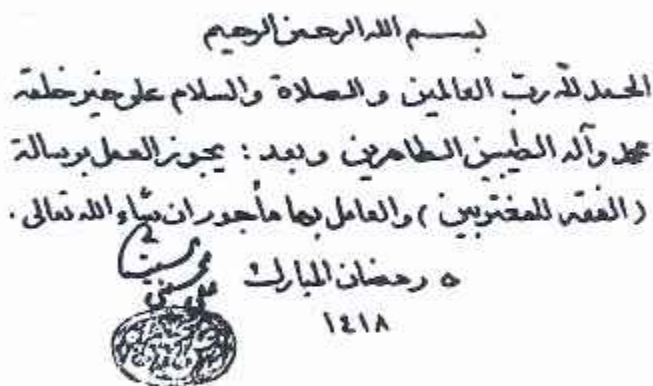 بسم الله الرحمن الرحيم
الحمد لله ربّ العالمين والصلاة والسلام على خير خلقه
محمد وآله الطيبين الطاهرين وبعد : يجوز العمل برسالة
( الفقه للمغتربين ) والعامل بها مأجور ان شاء الله تعالى .
٥ رمضان المبارك
١٤١٨
علي الحسيني السيستاني